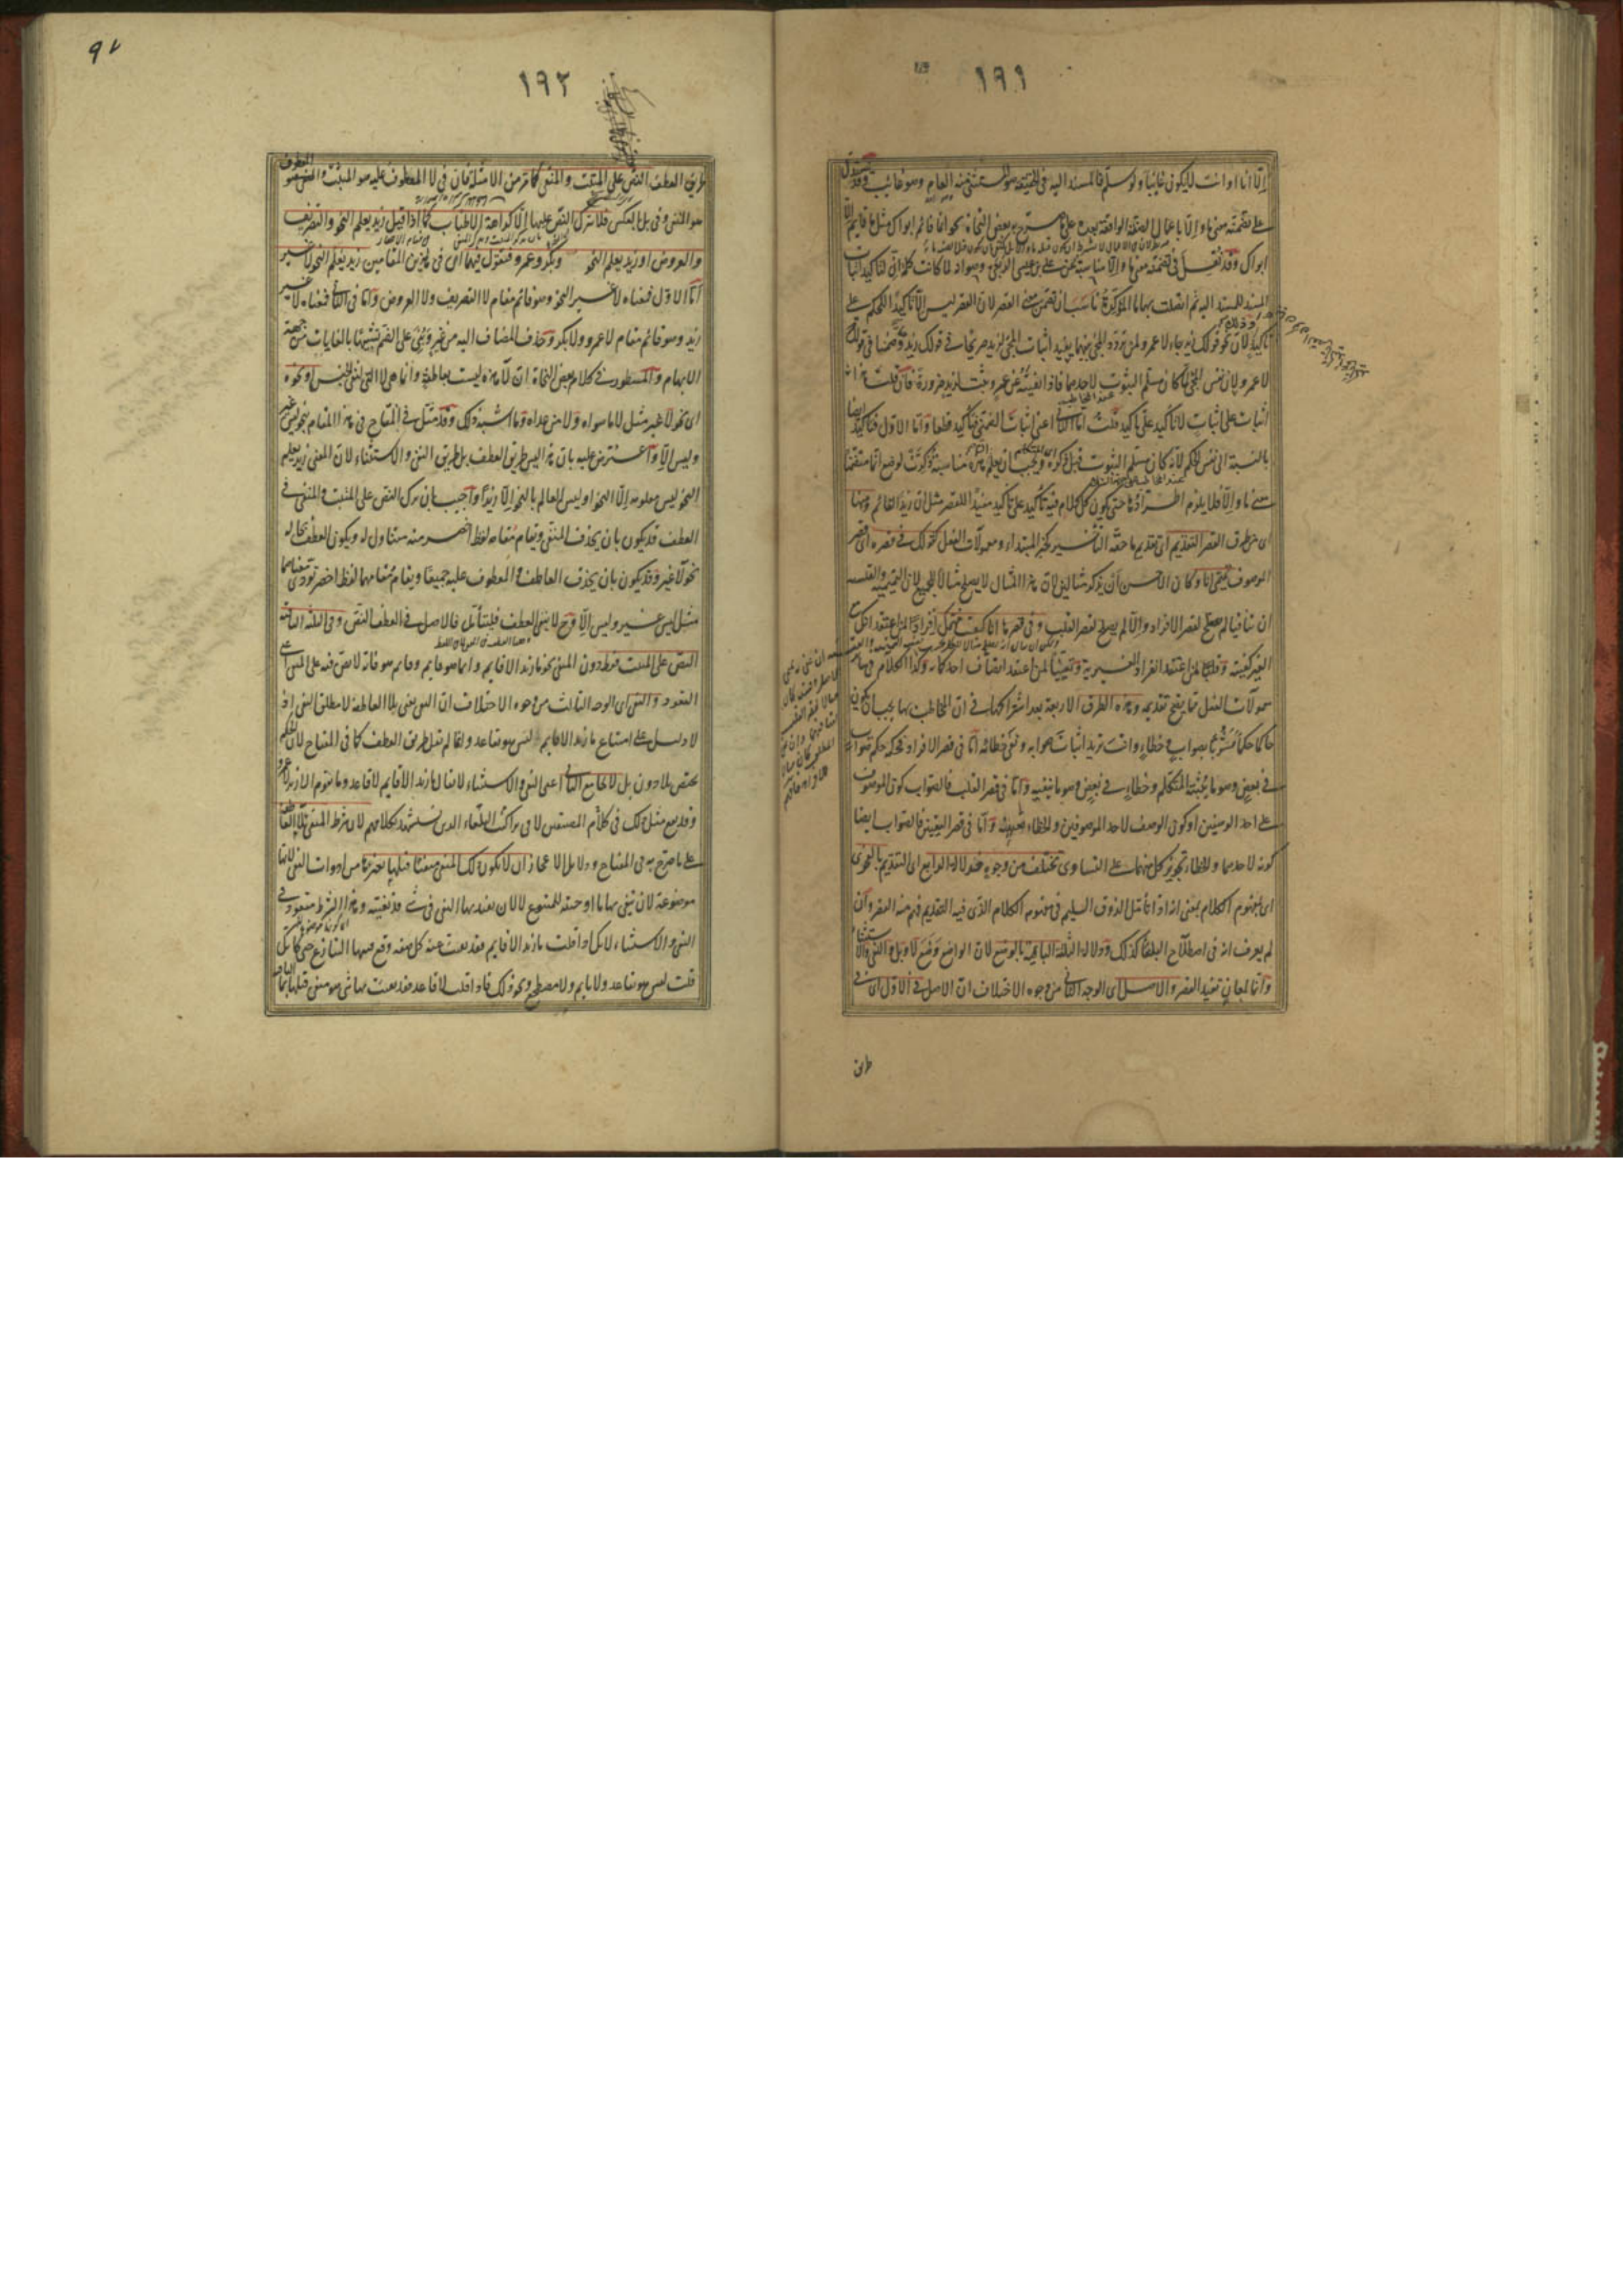 ١٩١
الا انا او انت لا يكون غائبا ولو سلم فالمسند اليه فى الحقيقة هو المستثنى منه العام وهو غائب
على تضمنه معنى ما والا باعمال الصفة الواقعة بعده على ما صرح به بعض النحاة نحو انما قائم ابواك مثل ما قائم الا
ابواك وقد نقل فى تضمنه معنى ما والا مناسبة عن على بن عيسى الربعى وهو انه لما كانت كلمة ان لتاكيد اثبات
المسند للمسند اليه ثم اتصلت بها ما المؤكدة ناسب ان تضمن معنى القصر لان القصر ليس الا تاكيدا للحكم على
تاكيد لان نحو قولك زيد جاء لا عمرو لمن تردد المجئ بينهما يفيد اثبات المجئ لزيد صريحا فى قولك زيد وضمنا فى قولك
لا عمرو لان نفس المجئ لما كان مسلم الثبوت لاحدهما فاذا نفيته عن عمرو ثبت لزيد ضرورة فان قلت هذا
اثبات على اثبات لا تاكيد على تاكيد قلت اما الثانى اعنى اثبات الضمنى فتاكيد قطعا واما الاول فتاكيد ايضا
بالنسبة الى نفس الحكم لانه كان مسلم الثبوت قبل ذكره ويجب ان يعلم ان هذه مناسبة ذكرت لوضع انما متضمنا
معنى ما والا فلا يلزم اطرادها حتى يكون كل كلام فيه تاكيد على تاكيد مفيدا للقصر مثل ان زيدا لقائم ومنها
اى من طرق القصر التقديم اى تقديم ما حقه التأخير كخبر المبتداء ومعمولات الفعل كقولك فى قصره اى قصر
الموصوف تميمى انا وكان الاحسن ان يذكر مثالين لان هذا المثال لا يصلح مثالا للجميع لان التميمية والقيسية
ان تنافيا لم يصلح لقصر الافراد والا لم يصلح لقصر القلب وفى قصرها انا كفيت مهمك افرادا لمن اعتقد انك مع
الغير كفيته وقلبا لمن اعتقد انفراد الغير به وتعيينا لمن اعتقد اتصاف احدكما به وكذا الكلام فى سائر
معمولات الفعل مما يصح تقديمه وهذه الطرق الاربعة بعد اشتراكها فى ان المخاطب بها يجب ان يكون
حاكما حكما مشوبا بصواب وخطاء وانت تريد اثبات صوابه ونفى خطائه اما فى قصر الافراد فحكمه حكم صواب
فى بعض وهو ما يثبته المتكلم وخطاء فى بعض وهو ما ينفيه واما فى قصر القلب فالصواب كون الموصوف
على احد الوصفين او كون الوصف لاحد الموصوفين والخطاء تعيينه واما فى قصر التعيين فالصواب ايضا
كونه لاحدهما والخطاء تجويز كل منهما على التساوى تختلف من وجوه فدلالة الرابع اى التقديم بالفحوى
اى بمفهوم الكلام بمعنى انه اذا تأمل الذوق السليم فى مفهوم الكلام الذى فيه التقديم فهم منه القصر وان
لم يعرف انه فى اصطلاح البلغا كذلك ودلالة الثلثة الباقية بالوضع لان الواضع وضع لا وبل والنفى والاستثناء
وانما لمعان تفيد القصر والاصل اى الوجه الثانى من وجوه الاختلاف ان الاصل فى الاول اى فى
طريق
١٩٢
طريق العطف النص على المثبت والمنفى كما مر من الامثلة فان فى لا المعطوف عليه هو المثبت والمعطوف
هو المنفى وفى بل بالعكس فلا يترك النص عليهما الا كراهة الاطناب كما اذا قيل زيد يعلم النحو والتصريف
والعروض او زيد يعلم النحو وبكر وعمرو فتقول فيهما اى فى هذين المقامين زيد يعلم النحو لا غير
اما الاول فمعناه لا غير النحو وهو قائم مقام لا التصريف ولا العروض واما فى الثانى فمعناه لا غير
زيد وهو قائم مقام لا عمرو ولا بكر وحذف المضاف اليه من غير وبنى على الضم تشبيها بالغايات من جهة
الابهام والمسطور فى كلام بعض النحاة ان لا هذه ليست بعاطفة وانما هى لا التى لنفى الجنس او نحوه
اى نحو لا غير مثل لا ما سواه ولا من عداه وما اشبه ذلك وقد مثل فى المفتاح فى هذا المقام بنحو ليس غير
وليس الا واعترض عليه بان هذا ليس طريق العطف بل طريق النفى والاستثناء لان المعنى زيد يعلم
النحو ليس معلومه الا النحو او ليس العالم بالنحو الا زيدا واجيب بان ترك النص على المثبت والمنفى فى
العطف قد يكون بان يحذف المنفى ويقام مقامه لفظ اخصر منه متناول له ويكون العطف بحاله
نحو لا غير وقد يكون بان يحذف العاطف والمعطوف عليه جميعا ويقام مقامهما لفظ اخصر تودى معناهما
مثل ليس غير وليس الا وح لا يبقى العطف فليتأمل فالاصل فى العطف النص وفى الثلثة الباقية
النص على المثبت فقط دون المنفى نحو ما زيد الا قايم وانما هو قايم وقايم هو فانه لا نص فيه على المنفى اعنى
القعود والنفى اى الوجه الثالث من وجوه الاختلاف ان النفى يعنى بلا العاطفة لا مطلق النفى اذ
لا دليل على امتناع ما زيد الا قايم ليس هو بقاعد ولما لم يقل طريق العطف كما فى المفتاح لان الحكم
يختص بلا دون بل لا يجامع الثانى اعنى النفى والاستثناء لا يقال ما زيد الا قايم لا قاعد وما يقوم الا زيد لا عمرو
وقد يقع مثل ذلك فى كلام المصنفين لا فى تراكيب البلغاء الذين يستشهد بكلامهم لان شرط المنفى بلا العاطفة
على ما صرح به فى المفتاح ودلايل الاعجاز ان لا يكون ذلك المنفى منفيا قبلها بغيرها من ادوات النفى لانها
موضوعة لان تنفى بها ما اوجبته للمتبوع لا لان تعيد بها النفى فى شئ قد نفيته وهذا الشرط مفقود فى
النفى والاستثناء لانك اذا قلت ما زيد الا قايم فقد نفيت عنه كل صفة وقع فيها التنازع حتى كانك
قلت ليس هو بقاعد ولا نايم ولا مضطجع ونحو ذلك فاذا قلت لا قاعد فقد نفيت بها شئ هو منفى قبلها بما